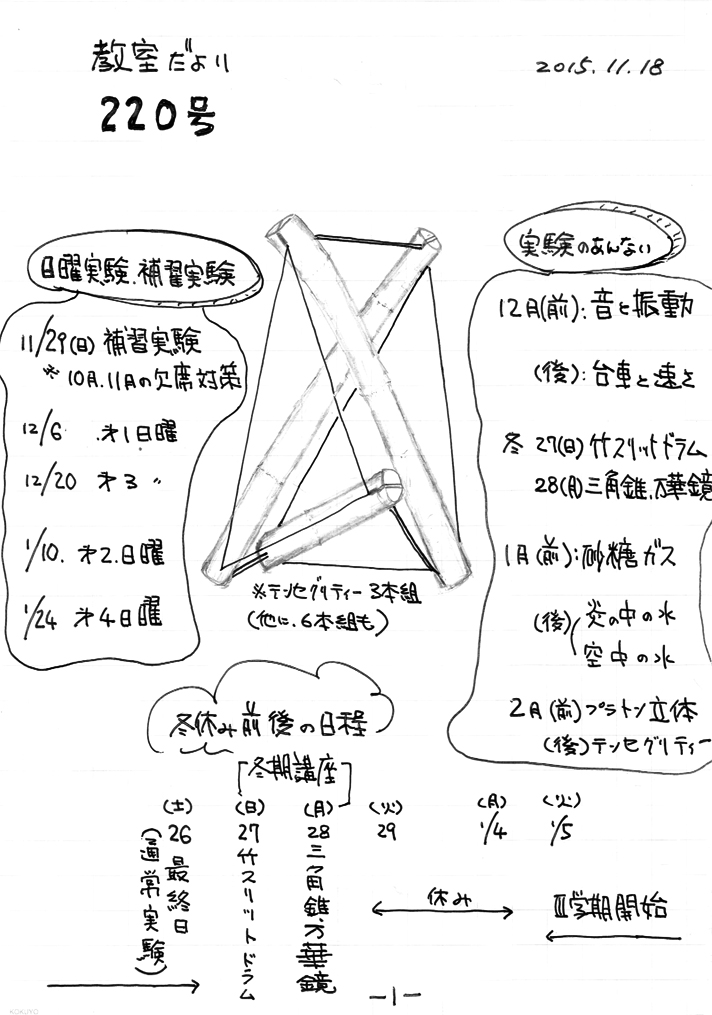 教室だより
220号
2015.11.18
日曜実験.補習実験
11/29(日) 補習実験
※ 10月.11月の欠席対策
12/6 才1日曜
12/20 才3 〃
1/10. 才2.日曜
1/24 才4日曜
※テンセグリティー 3本組
(他に.6本組も)
実験のあんない
12月(前):音と振動
(後):台車と速さ
冬 27(日)竹スリットドラム
28(月)三角錐.万華鏡
1月(前):砂糖ガス
(後) 炎の中の水
空中の水
2月(前)プラトン立体
(後)テンセグリティー
冬休み前後の日程
冬期講座
(土) (日) (月) (火) (月) (火)
26 27 28 29 1/4 1/5
最終日
(通常実験)
竹スリットドラム
三角錐.万華鏡
休み
Ⅲ学期開始
-1-
KOKUYO